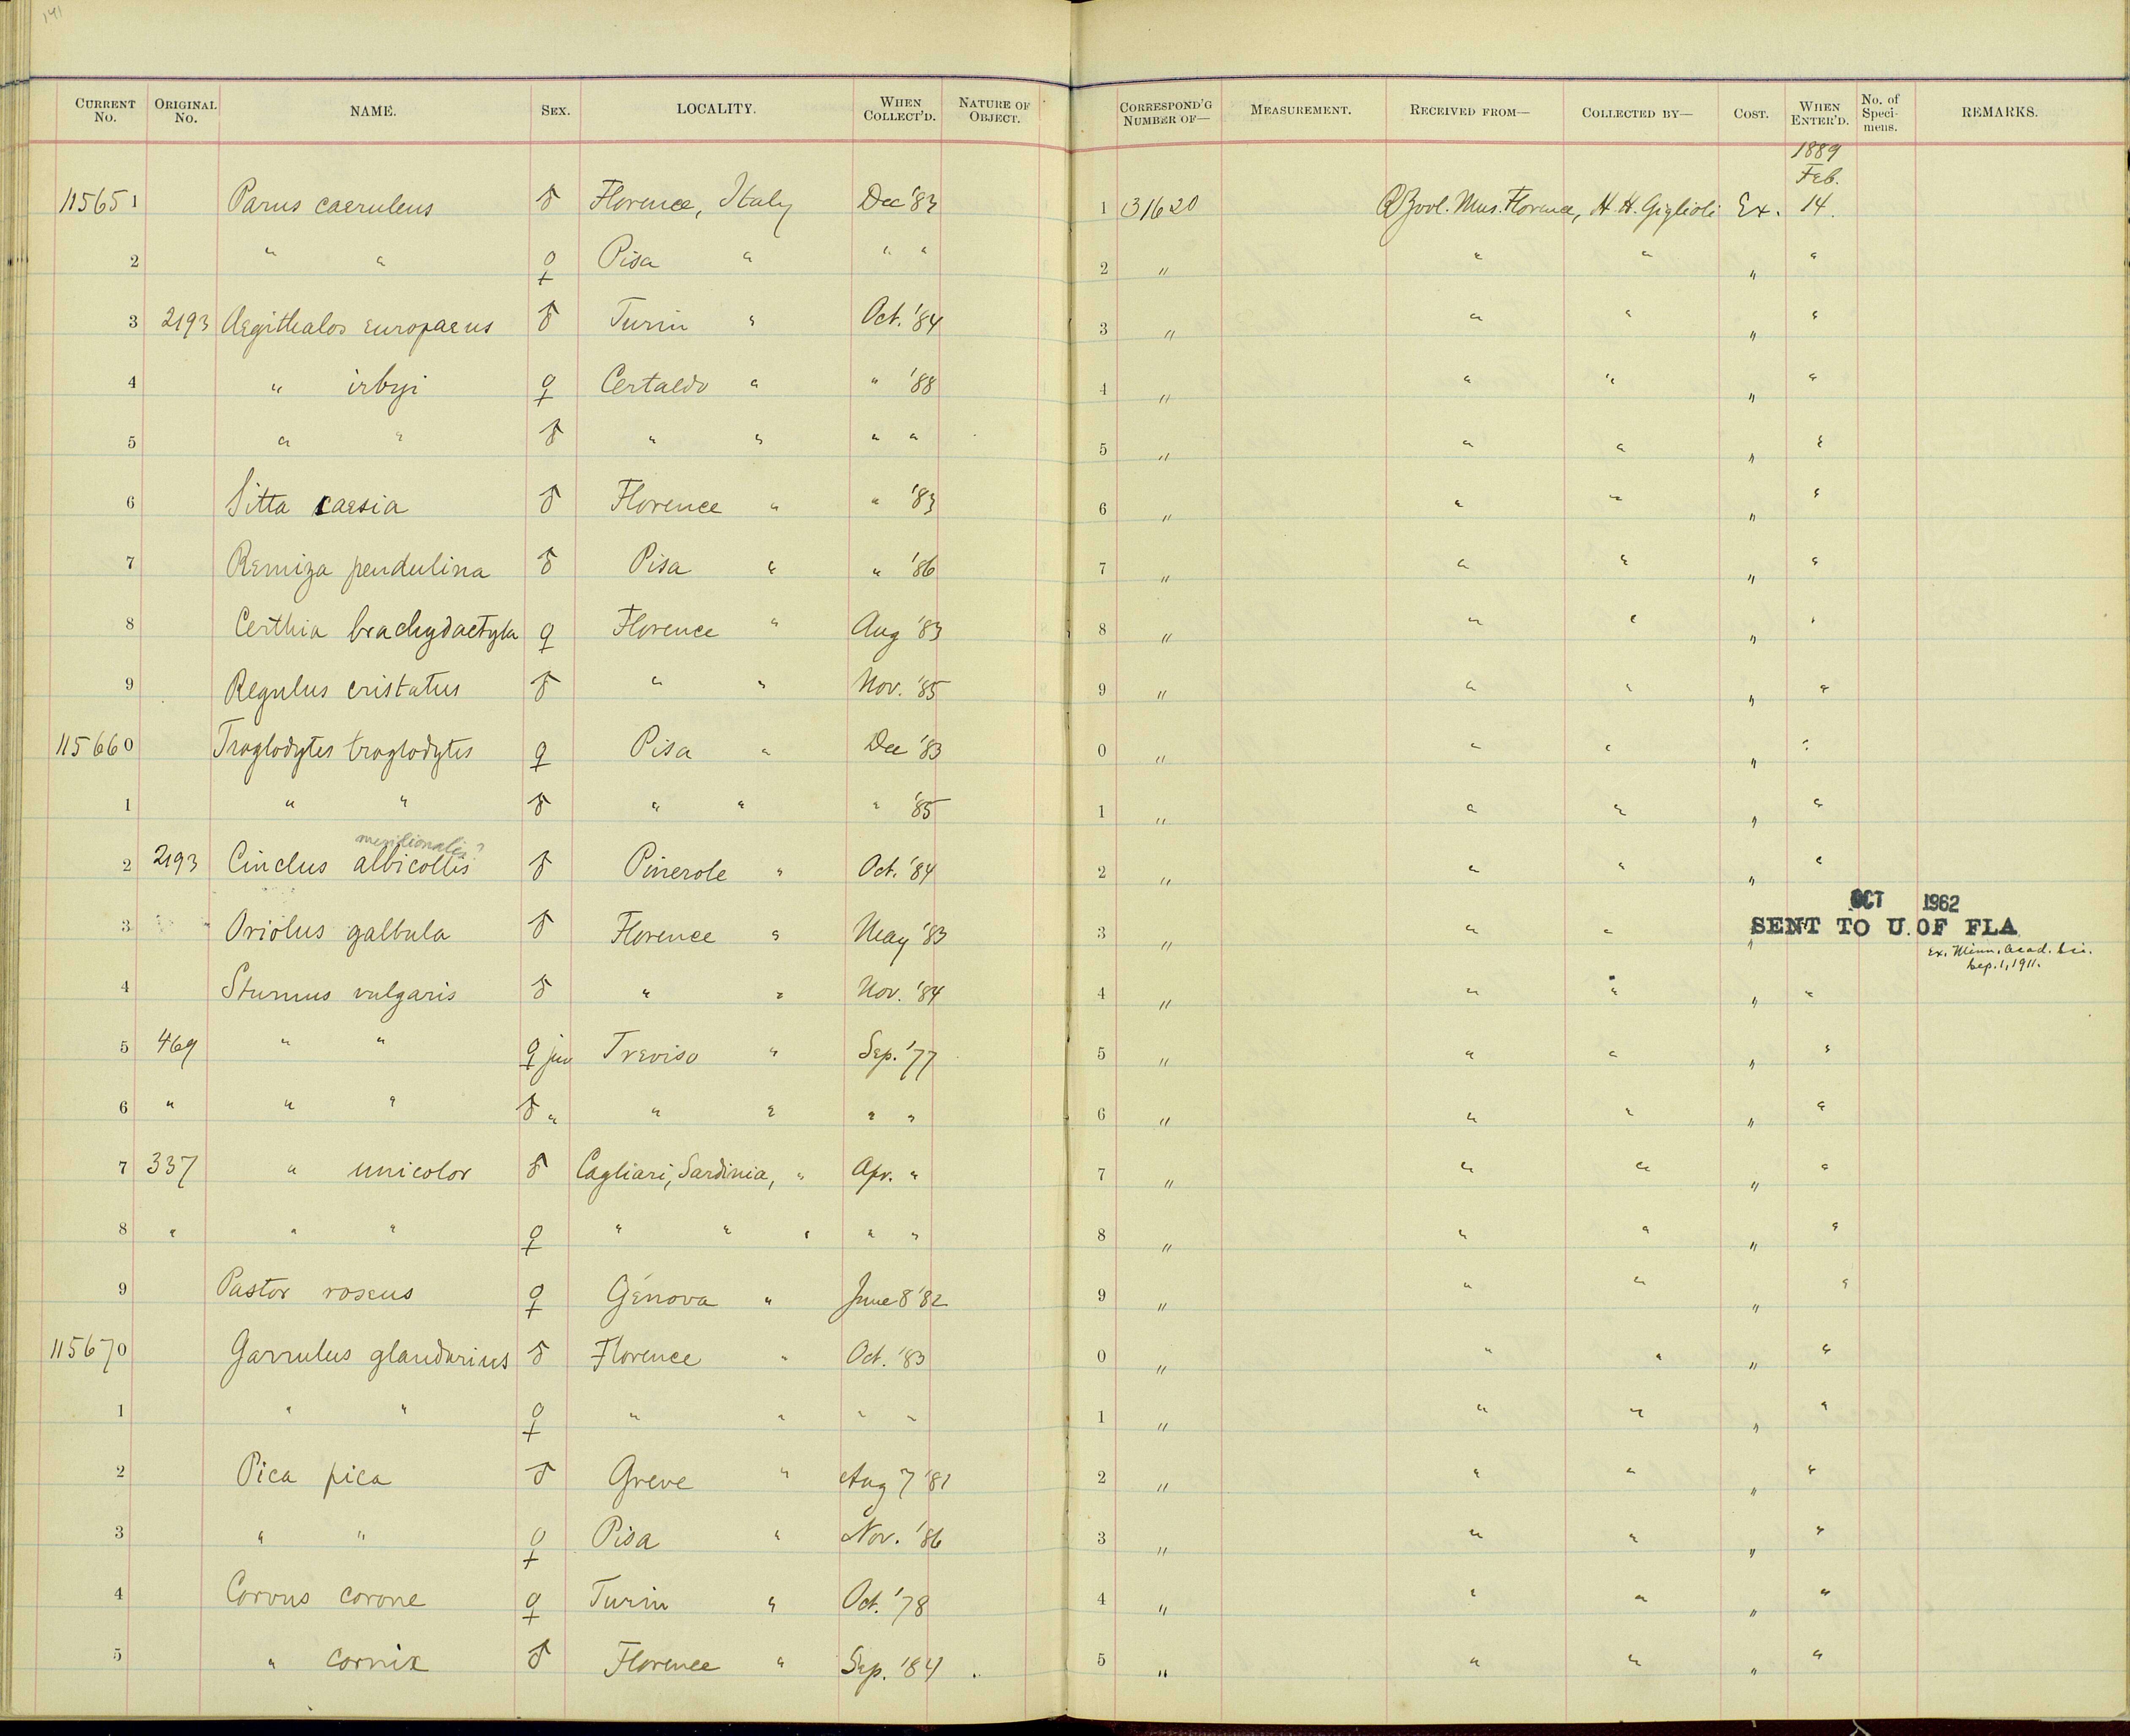 141
CURRENT No. ORIGINAL No. NAME. SEX. LOCALITY. WHEN COLLECT'D. NATURE OF OBJECT. CORRESPOND'G NUMBER OF— MEASUREMENT. RECEIVED FROM— COLLECTED BY— COST. WHEN ENTER'D. No. of Speci-mens. REMARKS.
1889
Feb.
115651 Parus caeruleus ♂ Florence, Italy Dec '83 1 31620 Zool. Mus. Florence, H. H. Giglioli Ex. 14.
2 " " ♀ Pisa " " " 2 " " " " "
3 2193 Aegithalos europaeus ♂ Turin " Oct. '84 3 " " " " "
4 " irbyi ♀ Certaldo " " '88 4 " " " " "
5 " " ♂ " " " " 5 " " " " "
6 Sitta caesia ♂ Florence " " '83 6 " " " " "
7 Remiza pendulina ♂ Pisa " " '86 7 " " " " "
8 Certhia brachydactyla ♀ Florence " Aug '83 8 " " " " "
9 Regulus cristatus ♂ " " Nov. '85 9 " " " " "
115660 Troglodytes troglodytes ♀ Pisa " Dec '83 0 " " " " "
1 " " ♂ " " " '85 1 " " " " "
meridionalis?
2 2193 Cinclus albicollis ♂ Pinerole " Oct. '84 2 " " " " "
OCT 1962
3 Oriolus galbula ♂ Florence " May '83 3 " " " " SENT TO U. OF FLA
Ex. Minn. Acad. Sci.
Sep. 1, 1911.
4 Sturnus vulgaris ♂ " " Nov. '84 4 " " " " "
5 469 " " ♀ juv Treviso " Sep. '77 5 " " " " "
6 " " " ♂ " " " " " 6 " " " " "
7 337 " unicolor ♂ Cagliari, Sardinia, " Apr. " 7 " " " " "
8 " " " ♀ " " " " " 8 " " " " "
9 Pastor roseus ♀ Genova " June 8 '82 9 " " " " "
115670 Garrulus glandarius ♂ Florence " Oct. '83 0 " " " " "
1 " " ♀ " " " " 1 " " " " "
2 Pica pica ♂ Greve " Aug 7 '81 2 " " " " "
3 " " ♀ Pisa " Nov. '86 3 " " " " "
4 Corvus corone ♀ Turin " Oct. '78 4 " " " " "
5 " cornix ♂ Florence " Sep. '84 5 " " " " "